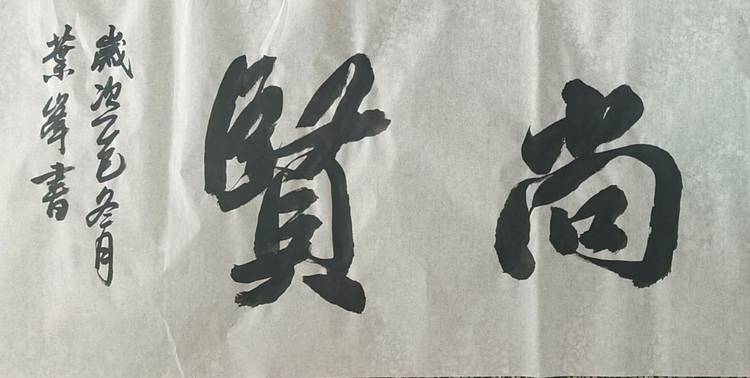 尚賢
歲次乙巳冬月
葉峯書